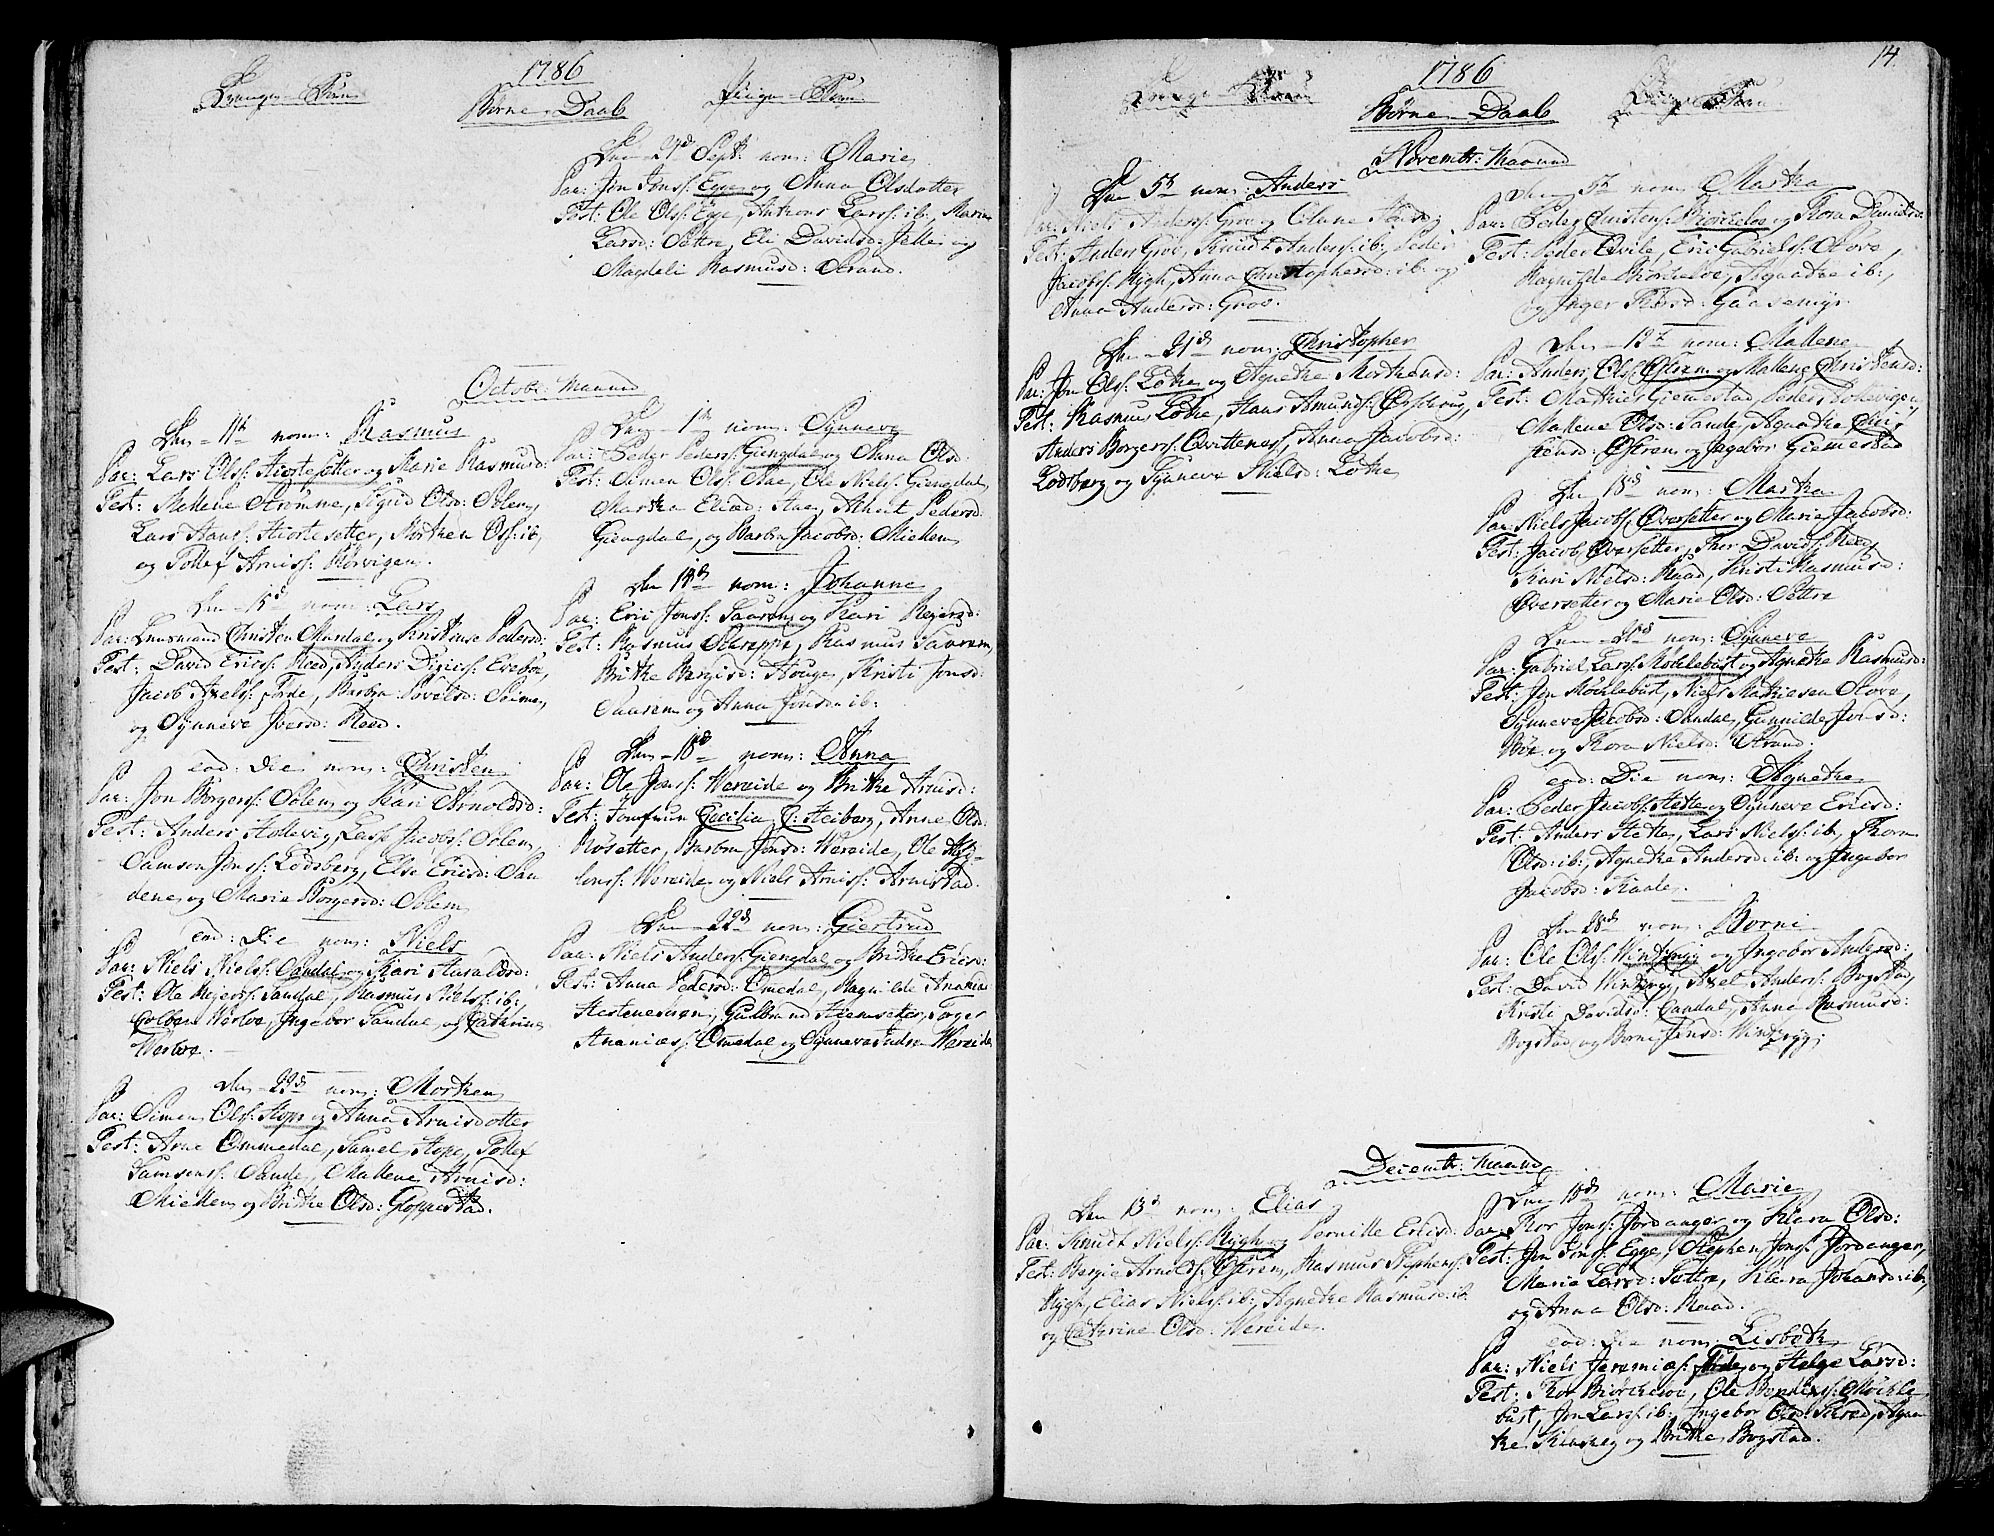 1786
Drenge-Børn
Børne-Daab
Pige-Børn
Den 21de Sept: nom: Marie
Par: Jon Jonss: Egge og Anna Olsdotter
Test: Ole Olss: Egge, Anthons Larss: ib:, Marie
Larsd: Sættre, Eli Davidsd: Jelle og
Magdeli Rasmusd: Strand.
Octobr: Maaned
Den 11te nom: Rasmus
Par: Lars Olss: Hiortesetter og Marie Rasmusd:
Test: Mallene Strømme, Sigrid Olsd: Solem,
Lars Hanss: Hiortesetter, Morthen Olss: ib,
og Tollef Arniss: Rørvigen.
Den 15de nom: Lars
Par: Lensmand Christen Mardal og Kristense Pedersd:
Test: David Ericss: Reed, Anders Digress: Eveboe,
Jacob Axelss: Fæde, Barbra Povelsd: Seime,
og Synneve Iversd: Reed.
eod: Die nom: Christen
Par: Jon Børgerss: Solem og Kari Arnoldsd:
Test: Anders Hollevig, Lasse Jacobs: Solem,
Samson Jonss: Lodsberg, Else Ericsd: San
dene og Marie Børgersd: Solem
eod: Die nom: Niels
Par: Niels Nielss: Sandal og Kari Haraldsd:
Test: Ole Reierss: Sandal, Rasmus Nielss: ib:,
Colben Werloe, Ingebor Sandal, og Cathrine
Werloe.
Den 22de nom: Morthen
Par: Simen Olss: Hope og Anna Arnisdotter
Test: Arne Ommedal, Samel Hope, Tollef
Samsonss: Sande, Mallene Arnisd:
Mieklem og Brithe Olsd: Gloppestad.
Den 1te nom: Synneve
Par: Peder Peders: Giengdal og Anna Olsd:
Test: Simen Olss: Aae, Ole Nielss: Giengdal,
Martha Eliasd: Aae, Ahlut Pedersd:
Giengdal, og Barbra Jacobsd: Mieklem
Den 14de nom: Johanne
Par: Eric Jonss: Saarem og Kari Reiersd:
Test: Rasmus Skreppe, Rasmus Saarem,
Brithe Bergisd: Houge, Kristi Jonsd:
Saarem og Anna Jonsd: ib:
Den 18de nom: Anna
Par: Ole Jonss: Wereide og Brithe Arnisd:
Test: Jomfrue Cecilia C: Heiberg, Anne Olsd:
Røsetter, Barbra Jonsd: Wereide, Ole
lonss: Wereide og Niels Arniss: Arnestad.
Den 22de nom: Giertrud
Par: Niels Anderss: Giengdal og Brithe Ericsd:
Test: Anna Pedersd: Omedal, Ragnilde Ananiæ
Hestenesøren, Gulbrand Hiemsetter, Torger
Ananiæs: Omedal og Synneve Wereide
14
1786
Drenge-Børn
Børne-Daab
Pige-Børn
Novembr: Maaned
Den 5te nom: Anders
Par: Niels Anderss: Grov og Oliane Jonsd:
Test: Anders Grov, Knudt Anderss: ib:, Peder
Jacobss: Rygh, Anna Christophersd: ib: og
Anna Andersd: Grov.
Den 21de nom: Christopher
Par: Jon Olss: Lothe og Agnethe Morthensd:
Test: Rasmus Lothe, Hans Amunds: Espehoug,
Anders Børgerss: Qvitteness, Anna Jacobsd:
Lodberg og Synneve Nielsd: Lothe
Den 5te nom: Martha
Par: Peder Christens: Biørkeloe og Thora Danielsd:
Test: Peder Qvile, Eric Gabrielss: Støve,
Ragnilde Biørkeloe, Agnethe ib:,
og Inger Thorsd: Gaasemyr
Den 12te nom: Mallene
Par: Anders Olss: Østrem og Mallene Christensd:
Test: Mathies Giemestad, Peder Tollevigen,
Mallene Olsd: Sande, Agnethe Chri
stensd: Østrem og Ingebor Giemestad
Den 18de nom: Martha
Par: Niels Jacobs: Øversetter og Marie Jacobsd:
Test: Jacob Øversetter, Thor Davids: Reed,
Kari Nielsd: Raad, Kristi Rasmusd:
Øversetter og Marie Olsd: Sættre
Den 20de nom: Synneve
Par: Gabriel Larss: Møhlebust og Agnethe Rasmusd:
Test: Jon Møhlebust, Niels Mathiesen Støve,
Synneve Jacobsd: Sandal, Gunnilde Jonsd:
Bøe og Thora Nielsd: Strand.
eod: Die nom: Agnethe
Par: Peder Jacobss: Hethe og Synneve Ericsd:
Test: Anders Hethe, Lars Nielss: ib:, Thora
Olsd: ib:, Agnethe Andersd: ib: og Ingebor
Jacobsd: Kaale.
Den 28de nom: Børni
Par: Ole Olss: Windsryg og Ingebor Andersd:
Test: David Windsryg, Axel Anderss: Bogstad,
Kristi Davidsd: Sandal, Anne Rasmusd:
Bogstad, og Børni Jonsd: Windsryg.
Decembr: Maaned
Den 13de nom: Elias
Par: Knudt Nielss: Rygh og Pernille Ericsd:
Test: Bergie Arnoldss: Østrem, Rasmus Stephens:
Rygh, Elias Nielss: ib:, Agnethe Rasmusd: ib.
og Cathrine Olsd: Wereide.
Den 18de nom: Marie
Par: Thor Jonss: Jordanger og Klara Olsd:
Test: Jon Jonss: Egge, Stephen Jonss: Jordanger,
Marie Larsd: Sættre, Klara Johansd: ib:,
og Anna Olsd: Raad.
eod: Die nom: Lisbeth
Par: Niels Jeremiæs: og Helge Larsd:
Test: Thor Biørkeloe, Ole Bendixs: Møhle
bust, Jon Larss: ib:, Ingebor Olsd: Skred, Agne
the Kleskeg og Brithe Bogstad.